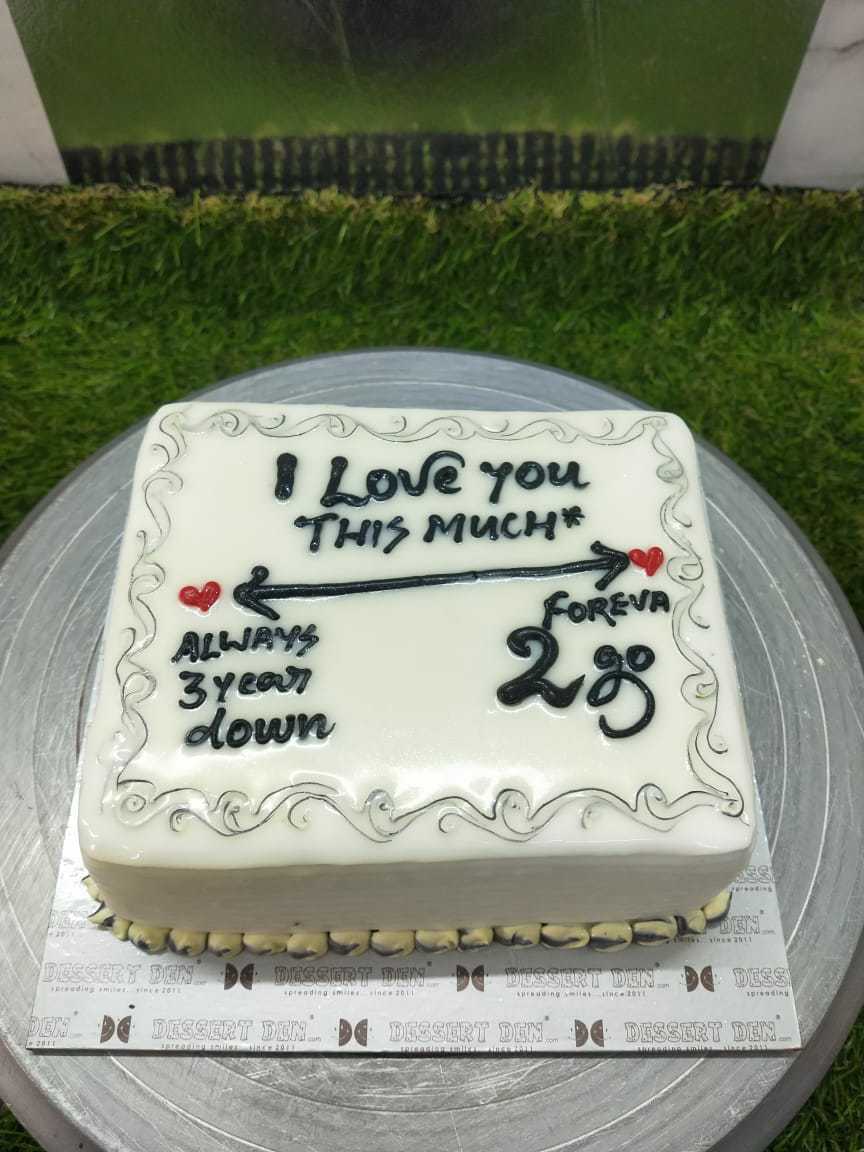 I Love you
THIS MUCH*
ALWAYS
3 year
down
FOREVA
2 go
DESSERT DEN.com
spreading smiles...since 2011
DESSERT DEN.com
spreading smiles...since 2011
DESSERT DEN.com
spreading smiles...since 2011
DESSERT DEN.com
spreading smiles...since 2011
DESSERT DEN.com
spreading smiles...since 2011
DESSERT DEN.com
spreading smiles...since 2011